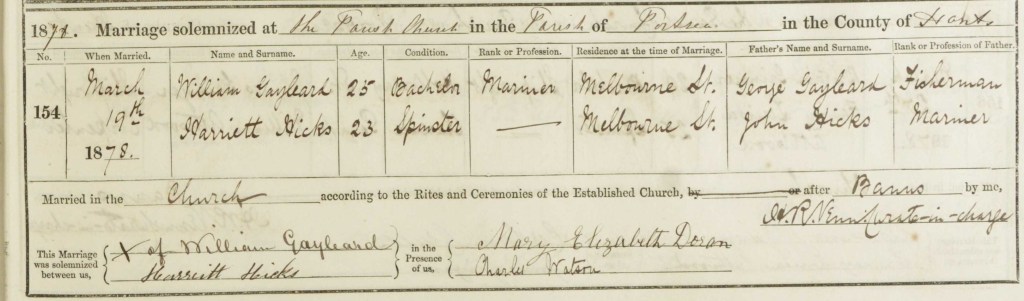 1878. Marriage solemnized at the Parish Church in the Parish of Portsea in the County of Hants
No. When Married. Name and Surname. Age. Condition. Rank or Profession. Residence at the time of Marriage. Father's Name and Surname. Rank or Profession of Father.
154 March 19th 1878. William Gayleard 25 Bachelor Mariner Melbourne St. George Gayleard Fisherman
Harriett Hicks 23 Spinster — Melbourne St. John Hicks Mariner
Married in the Church according to the Rites and Ceremonies of the Established Church, by or after Banns by me,
R. Venn Curate-in-charge
This Marriage was solemnized between us, X of William Gayleard
Harriett Hicks
in the Presence of us, Mary Elizabeth Doran
Charles Watson